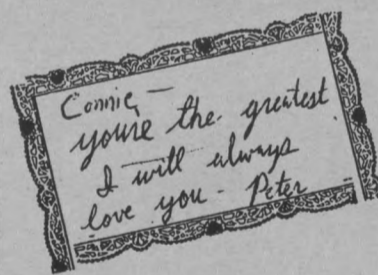 Connie —
you're the greatest
I will always
love you - Peter